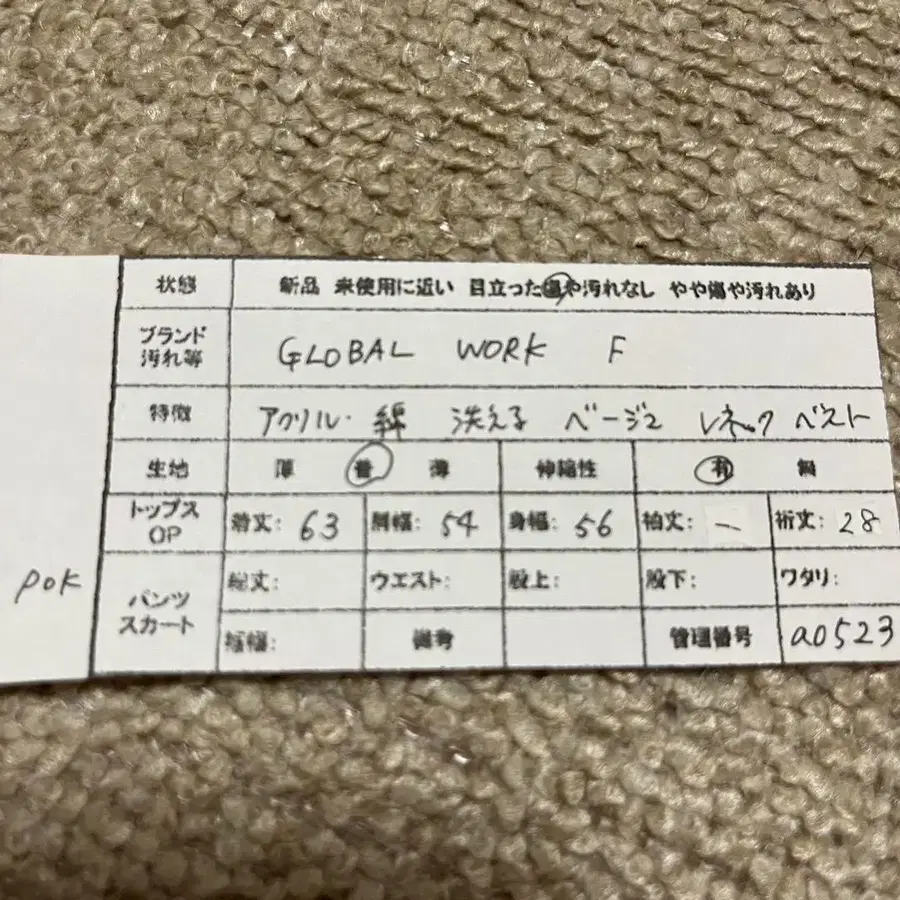 状態 新品 未使用に近い 目立った傷や汚れなし やや傷や汚れあり
ブランド
汚れ等 GLOBAL WORK F
特徴 アクリル・綿 洗える ベージュ Vネック ベスト
生地 厚 普 薄 伸縮性 有 無
トップス
OP 着丈: 63 肩幅: 54 身幅: 56 袖丈: ー 裄丈: 28
pok
パンツ
スカート 総丈: ウエスト: 股上: 股下: ワタリ:
裾幅: 備考 管理番号 a0523